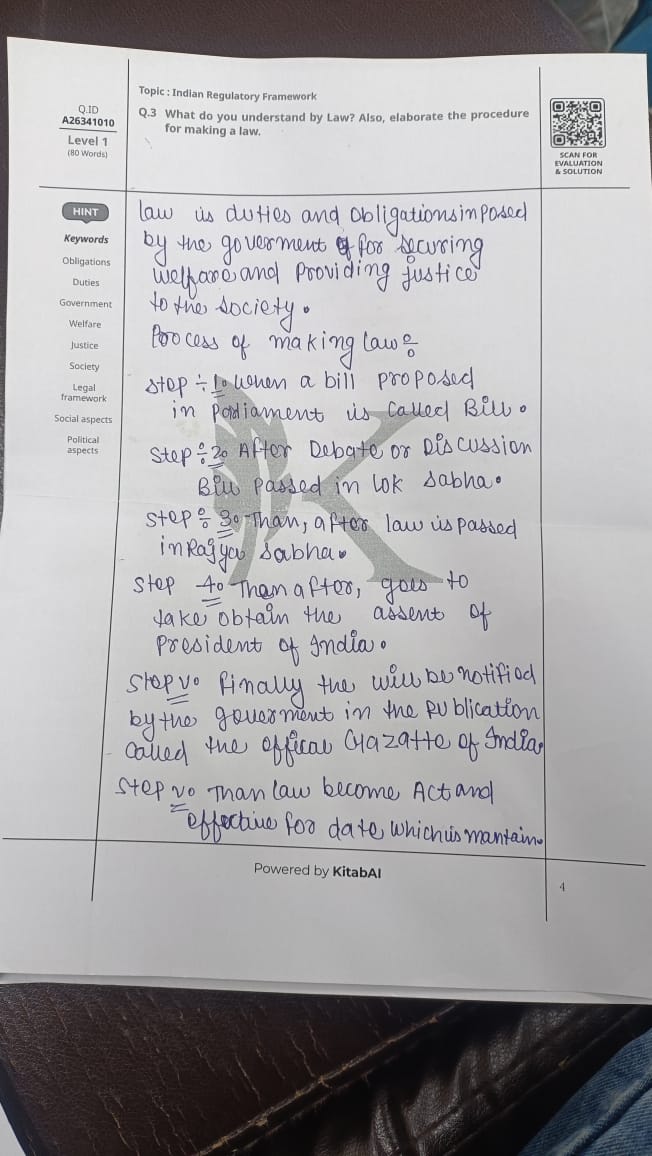 Topic : Indian Regulatory Framework
Q.ID
A26341010
Level 1
(80 Words)
Q.3 What do you understand by Law? Also, elaborate the procedure
for making a law.
SCAN FOR
EVALUATION
& SOLUTION
HINT
Keywords
Obligations
Duties
Government
Welfare
Justice
Society
Legal
framework
Social aspects
Political
aspects
law is duties and obligations imposed
by the goverment for securing
welfare and Providing justice
to the society.
Process of making law:
Step ÷ 1. When a bill proposed
in Parliament is called Bill.
Step : 2. After Debate or Discussion
Bill passed in lok sabha.
Step : 3. Than, after law is passed
in Rajya sabha.
Step 4. Then after, goes to
take obtain the assent of
President of India.
Step v. Finally the will be notified
by the goverment in the publication
called the offical Gazatte of India.
Step vo Than law become Act and
effective for date which is mantain.
Powered by KitabAI
4